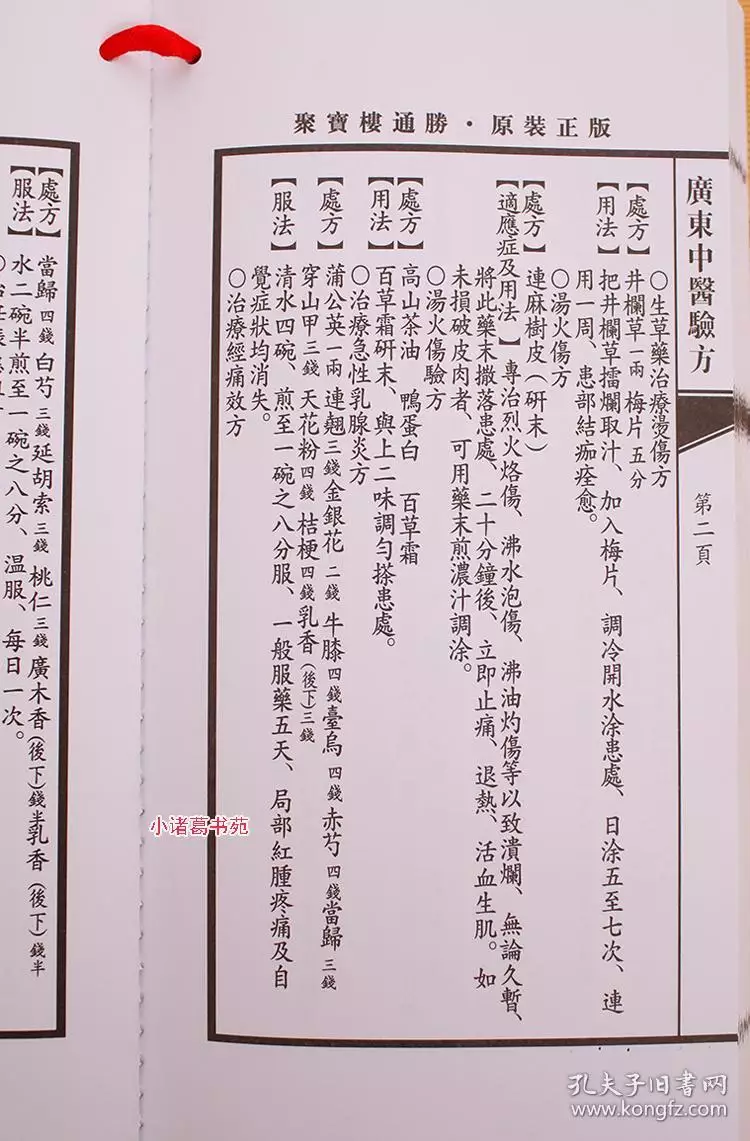 聚寶樓通勝·原裝正版
廣東中醫驗方
第二頁
○生草藥治療燙傷方
【處方】井欄草一兩 梅片五分
【用法】把井欄草擂爛取汁、加入梅片、調冷開水涂患處、日涂五至七次、連
用一周、患部結痂痊愈。
○湯火傷方
【處方】連麻樹皮(研末)
【適應症及用法】專治烈火烙傷、沸水泡傷、沸油灼傷等以致潰爛、無論久暫、
將此藥末撒落患處、二十分鐘後、立即止痛、退熱、活血生肌。如
未損破皮肉者、可用藥末煎濃汁調涂。
○湯火傷驗方
【處方】高山茶油 鴨蛋白 百草霜
【用法】百草霜研末、與上二味調勻搽患處。
○治療急性乳腺炎方
【處方】蒲公英一兩 連翹三錢金銀花二錢 牛膝四錢臺烏四錢 赤芍四錢當歸三錢
穿山甲三錢 天花粉四錢 桔梗四錢乳香(後下)三錢
【服法】清水四碗、煎至一碗之八分服、一般服藥五天、局部紅腫疼痛及自
覺症狀均消失。
○治療經痛效方
【處方】當歸四錢 白芍三錢延胡索三錢 桃仁三錢廣木香(後下)錢半乳香(後下)錢半
【服法】水二碗半煎至一碗之八分、溫服、每日一次。
小诸葛书苑
孔夫子旧书网
www.kongfz.com